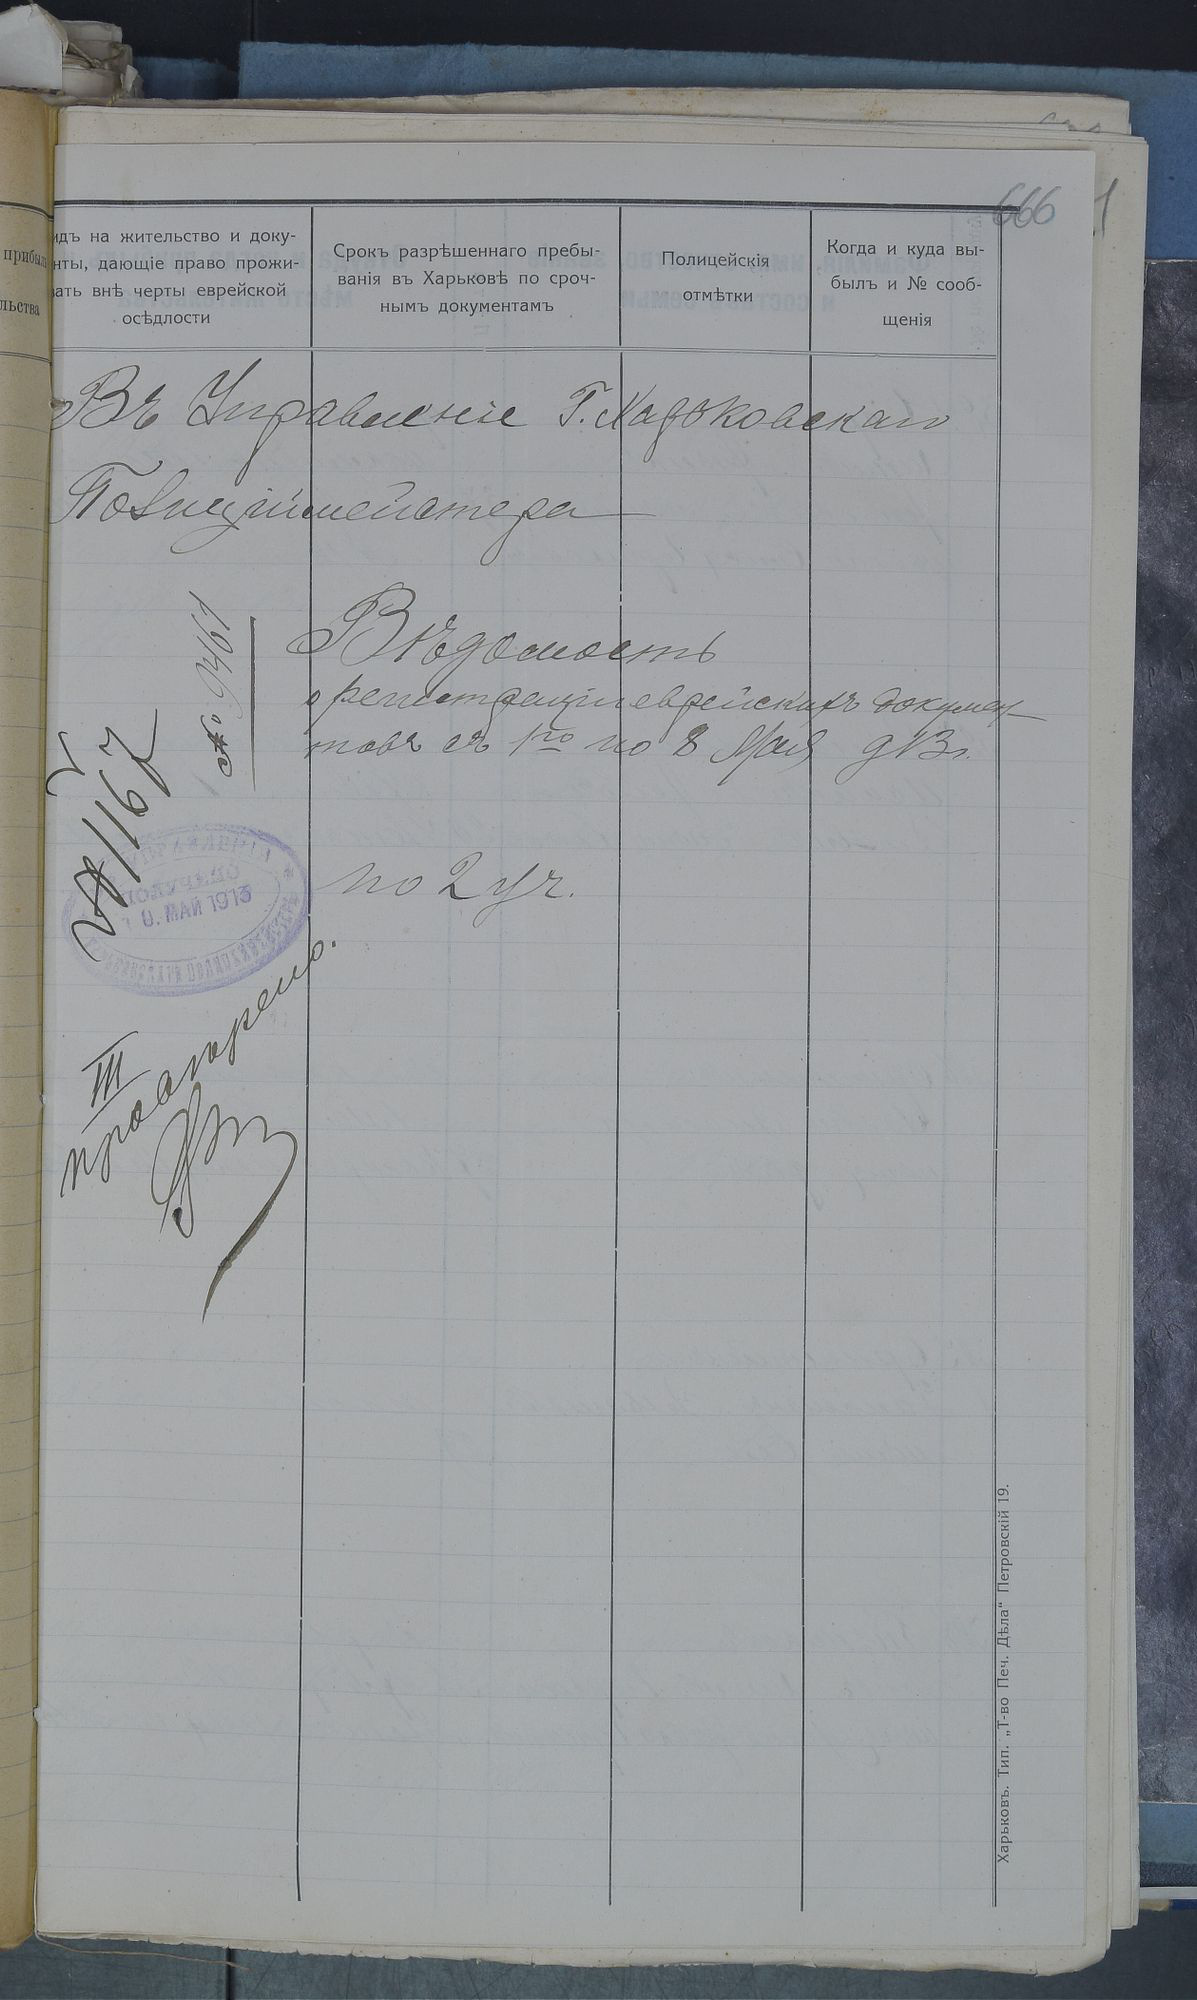 666
1
прибыл
льства
идъ на жительство и доку-
нты, дающіе право прожи-
вать внѣ черты еврейской
осѣдлости
Срокъ разрѣшеннаго пребы-
ванія въ Харьковѣ по сроч-
нымъ документамъ
Полицейскія
отмѣтки
Когда и куда вы-
былъ и № сооб-
щенія
Въ Управленіе Г. Харьковскаго
Полицiймейстера
№ 9461
Вѣдомость
о регистраціи еврейскихъ докумен-
товъ съ 1го по 8 Мая 913 г.
№ 1167
ПОЛУЧЕНО
МАЙ 1913
по 2 уч.
III
провѣрено.
Харьковъ. Тип. „Т-во Печ. Дѣла“ Петровскій 19.